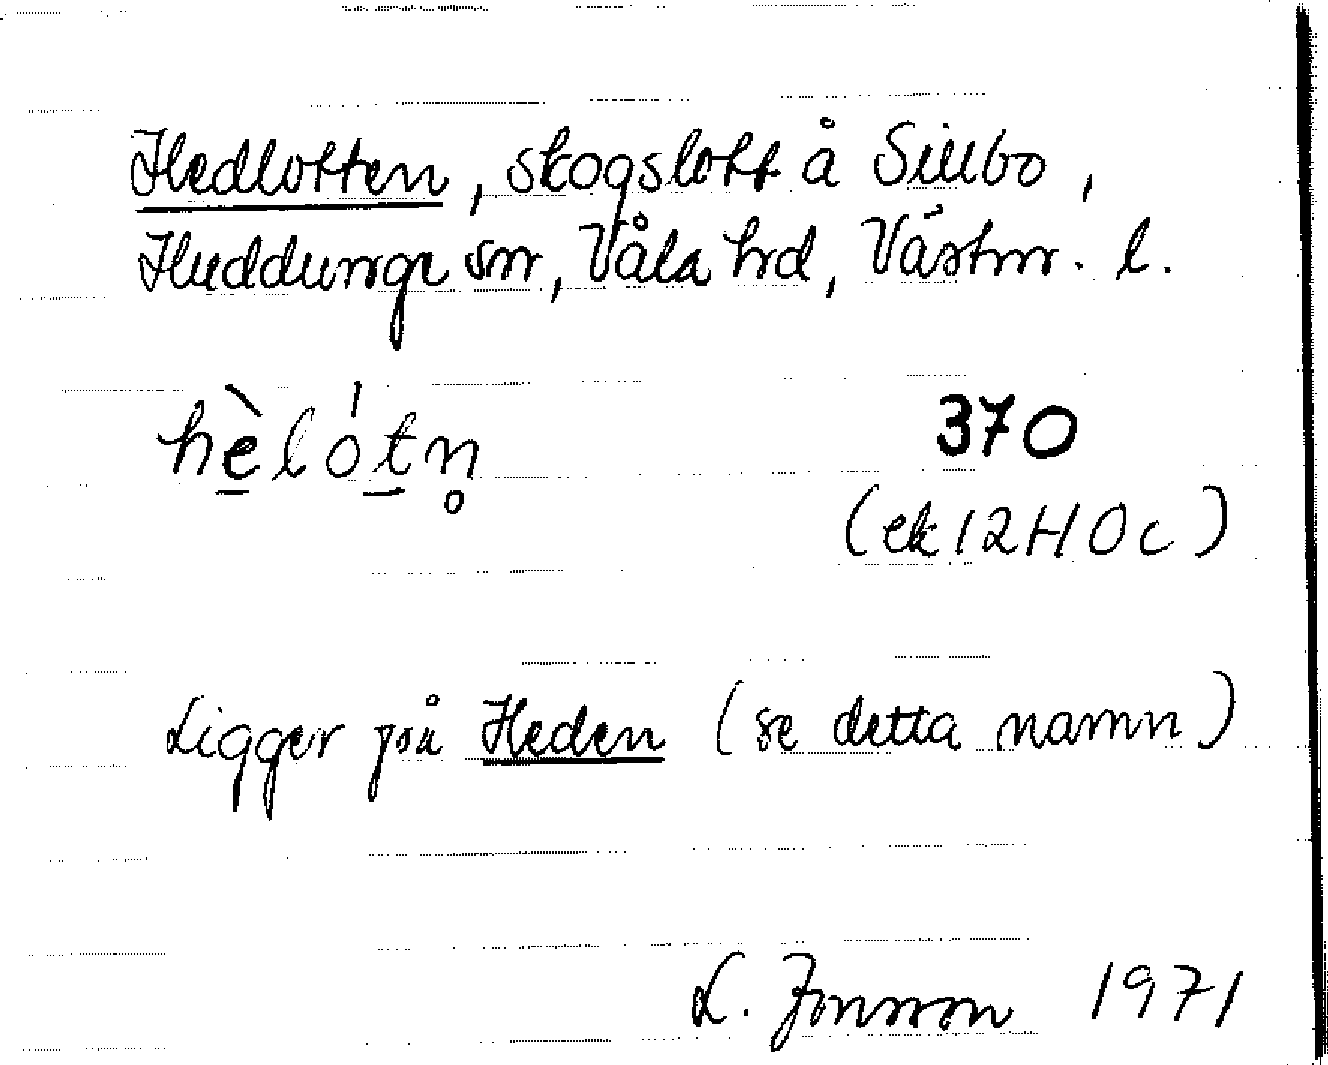 Hedlotten, skogslott å Sillbo,
Huddunge sn, Våla hd, Västm. l.
hèlótn̥
370
(ek 12H0c)
Ligger på Heden (se detta namn)
L. Jonsson 1971